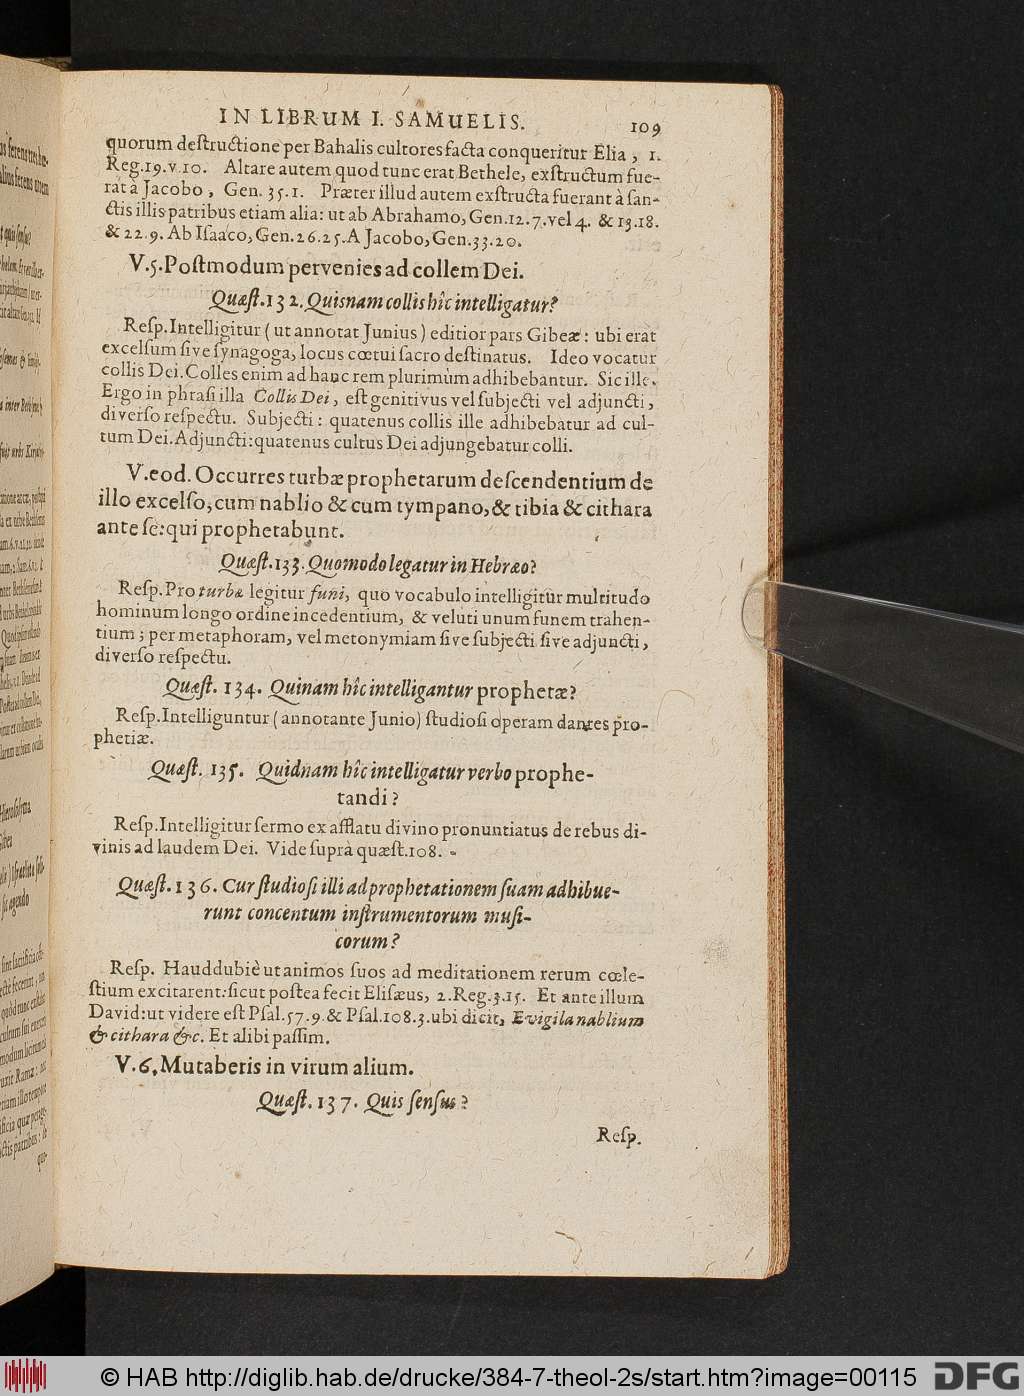 IN LIBRUM I. SAMUELIS. 109
quorum destructione per Bahalis cultores facta conqueritur Elia, 1.
Reg.19.v.10. Altare autem quod tunc erat Bethele, exstructum fue-
rat à Jacobo, Gen. 35.1. Præter illud autem exstructa fuerant à san-
ctis illis patribus etiam alia: ut ab Abrahamo, Gen.12.7.vel 4. & 13.18.
& 22.9. Ab Isaaco, Gen.26.25. A Jacobo, Gen.33.20.
V.5. Postmodum pervenies ad collem Dei.
Quæst.132. Quisnam collis hîc intelligatur?
Resp. Intelligitur (ut annotat Junius) editior pars Gibeæ: ubi erat
excelsum sive synagoga, locus cœtui sacro destinatus. Ideo vocatur
collis Dei. Colles enim ad hanc rem plurimùm adhibebantur. Sic ille.
Ergo in phrasi illa Collis Dei, est genitivus vel subjecti vel adjuncti,
diverso respectu. Subjecti: quatenus collis ille adhibebatur ad cul-
tum Dei. Adjuncti: quatenus cultus Dei adjungebatur colli.
V.eod. Occurres turbæ prophetarum descendentium de
illo excelso, cum nablio & cum tympano, & tibia & cithara
ante se: qui prophetabunt.
Quæst.133. Quomodo legatur in Hebræo?
Resp. Pro turbæ legitur funi, quo vocabulo intelligitur multitudo
hominum longo ordine incedentium, & veluti unum funem trahen-
tium; per metaphoram, vel metonymiam sive subjecti sive adjuncti,
diverso respectu.
Quæst. 134. Quinam hîc intelligantur prophetæ?
Resp. Intelliguntur (annotante Junio) studiosi operam dantes pro-
phetiæ.
Quæst. 135. Quidnam hîc intelligatur verbo prophe-
tandi?
Resp. Intelligitur sermo ex afflatu divino pronuntiatus de rebus di-
vinis ad laudem Dei. Vide suprà quæst.108.
Quæst.136. Cur studiosi illi ad prophetationem suam adhibue-
runt concentum instrumentorum musi-
corum?
Resp. Hauddubiè ut animos suos ad meditationem rerum cœle-
stium excitarent: sicut postea fecit Elisæus, 2.Reg.3.15. Et ante illum
David: ut videre est Psal.57.9. & Psal.108.3. ubi dicit, Evigila nablium
& cithara &c. Et alibi passim.
V.6. Mutaberis in virum alium.
Quæst.137. Quis sensus?
Resp.
© HAB http://diglib.hab.de/drucke/384-7-theol-2s/start.htm?image=00115
DFG